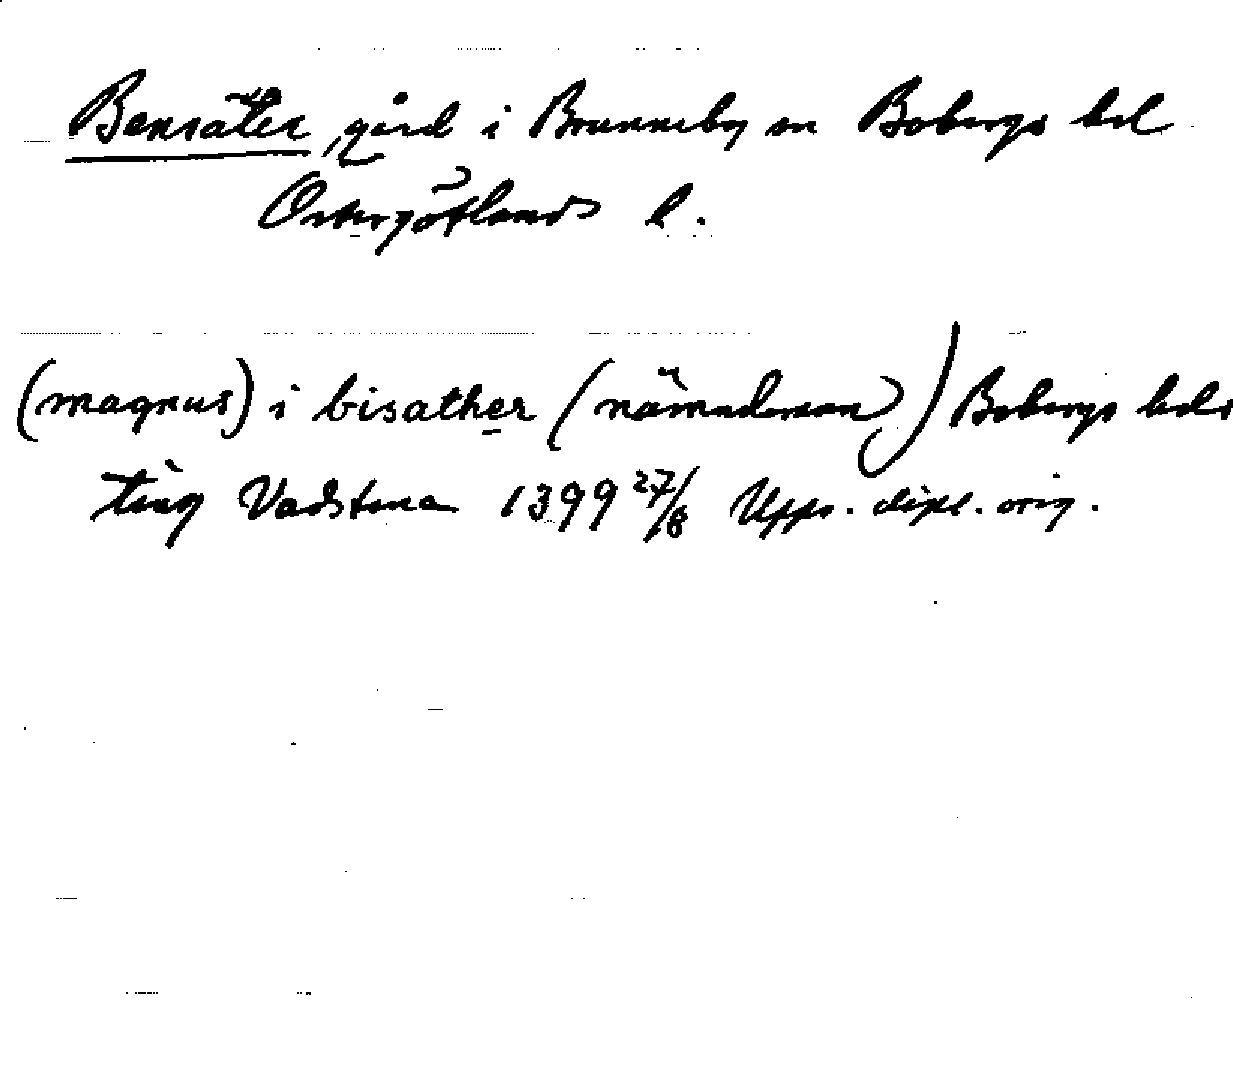 Bensäter, gård i Brunneby sn Bobergs hd
Östergötlands l.
(magnus) i bisather (nämndeman) Bobergs hds
ting Vadstena 1399 27/8 Upps. dipl. orig.